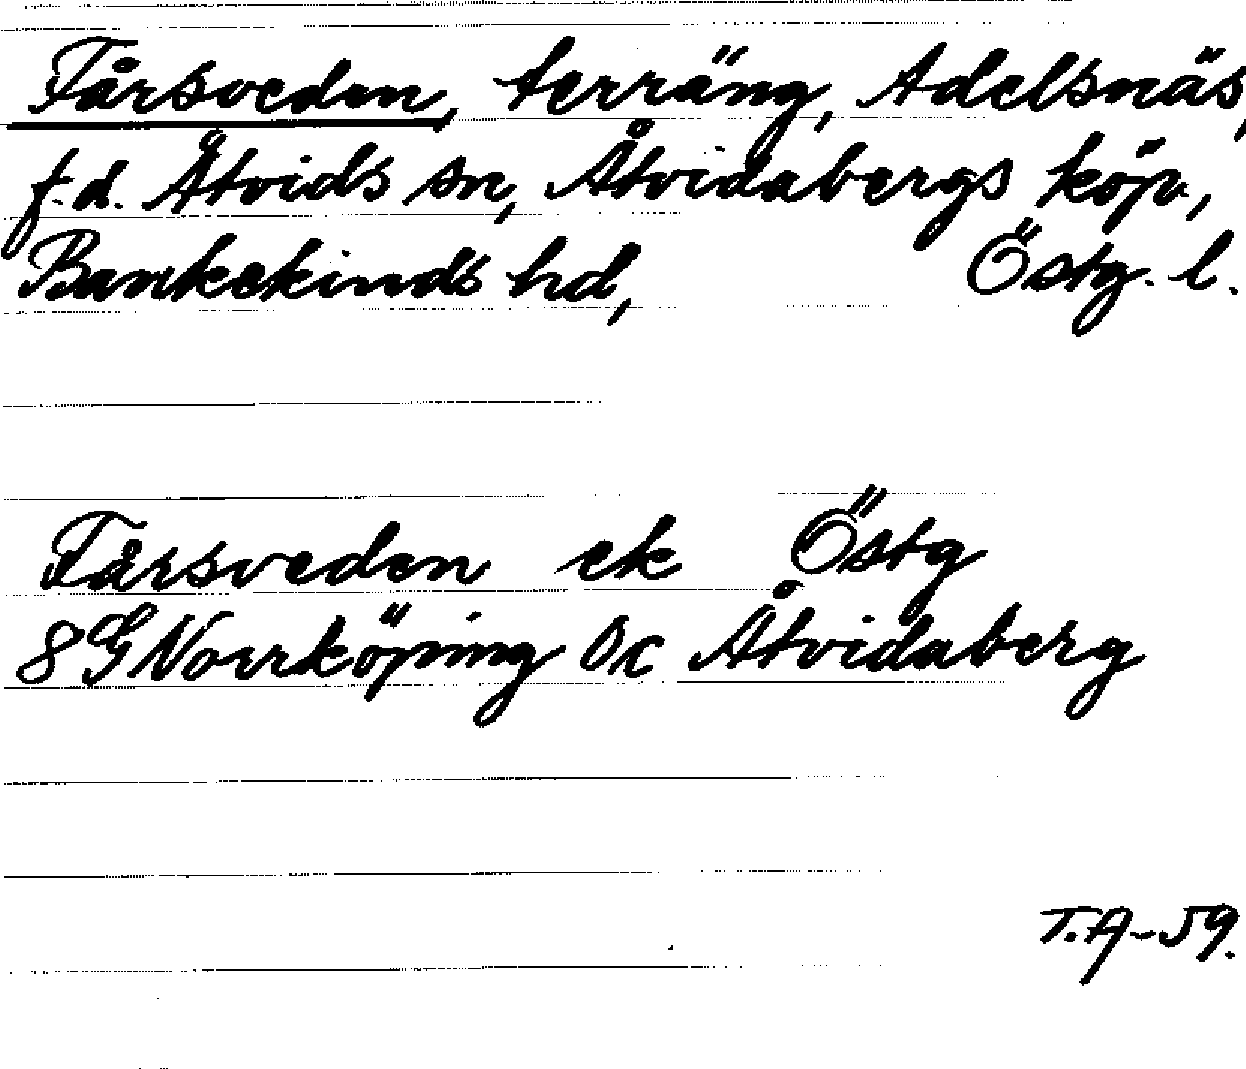 Fårsveden, terräng, Adelsnäs,
f.d. Åtvids sn, Åtvidabergs köp.,
Bankekinds hd, Östg. l.
Fårsveden ek Östg
8G Norrköping 0c Åtvidaberg
T.A-59.